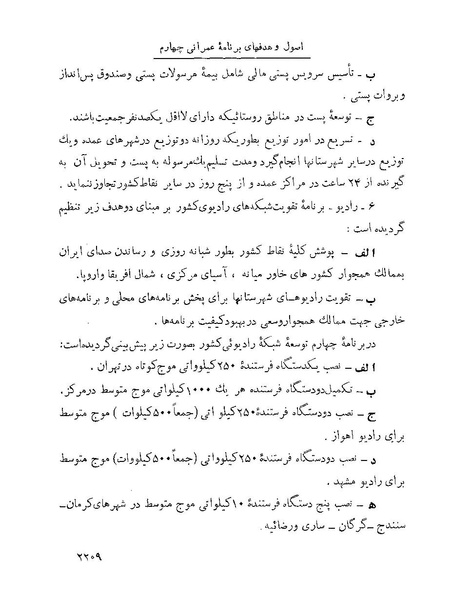 اصول و هدفهای برنامهٔ عمرانی چهارم
ب ـ تأسیس سرویس پستی مالی شامل بیمهٔ مرسولات پستی وصندوق پس‌انداز
وبروات پستی .
ج ـ توسعهٔ پست در مناطق روستائیکه دارای لااقل یکصدنفرجمعیت‌باشند.
د ـ تسریع در امور توزیع بطوریکه روزانه دوتوزیع درشهرهای عمده ویك
توزیع درسایر شهرستانها انجام‌گیرد ومدت تسلیم‌یك‌مرسوله به پست و تحویل آن به
گیرنده از ۲۴ ساعت در مراکز عمده و از پنج روز در سایر نقاط‌کشور‌تجاوز‌ننماید .
۶ ـ رادیو ـ برنامهٔ تقویت‌شبکه‌های رادیوی‌کشور بر مبنای دوهدف زیر تنظیم
گردیده است :
الف ـ پوشش کلیهٔ نقاط کشور بطور شبانه روزی و رساندن صدای ایران
بممالك همجوار کشور های خاور میانه ، آسیای مرکزی ، شمال افریقا واروپا.
ب ـ تقویت رادیوهـای شهرستانها برای پخش برنامه‌های محلی و برنامه‌های
خارجی جهت ممالك همجوار‌وسعی در‌بهبود‌کیفیت برنامه‌ها .
در‌برنامهٔ چهارم توسعهٔ شبکهٔ رادیوئی‌کشور بصورت زیر پیش‌بینی‌گردیده‌است:
الف ـ نصب یکدستگاه فرستندهٔ ۲۵۰ کیلوواتی موج‌کوتاه در‌تهران .
ب ـ تکمیل‌دودستگاه فرستنده هر یك ۱۰۰۰ کیلواتی موج متوسط در‌مرکز.
ج ـ نصب دودستگاه فرستندهٔ ۲۵۰کیلو اتی (جمعاً ۵۰۰کیلوات ) موج متوسط
برای رادیو اهواز .
د ـ نصب دودستگاه فرستندهٔ ۲۵۰کیلوواتی (جمعاً ۵۰۰کیلووات) موج متوسط
برای رادیو مشهد .
ه ـ نصب پنج دستگاه فرستندهٔ ۱۰کیلواتی موج متوسط در شهرهای‌کرمان ـ
سنندج ـ گرگان ـ ساری ورضائیه .
۲۲۰۹